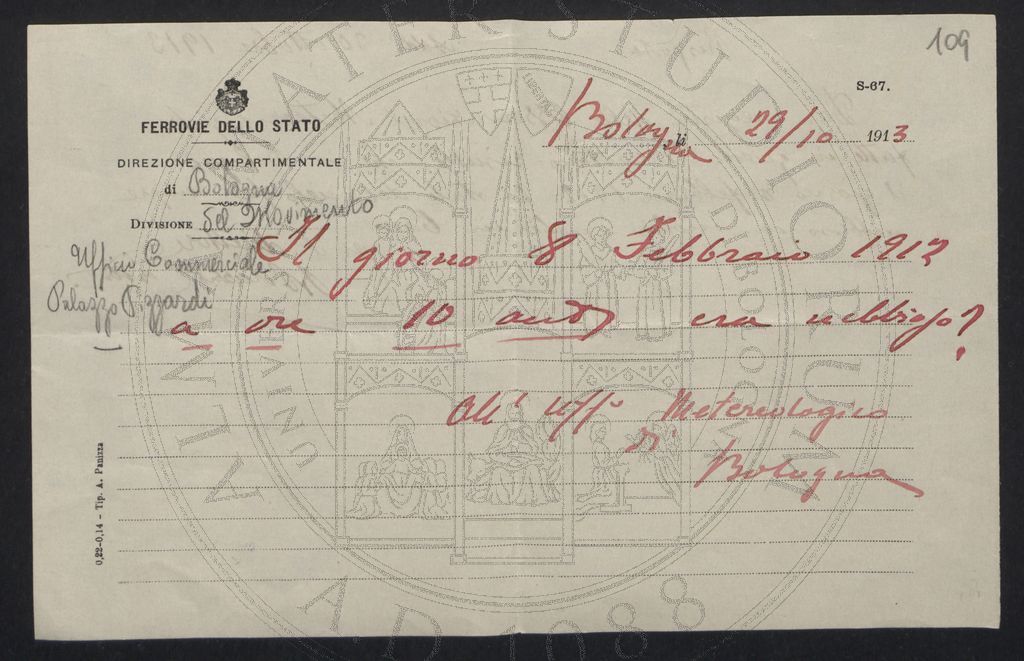 109
S-67.
FERROVIE DELLO STATO
DIREZIONE COMPARTIMENTALE
di Bologna
DIVISIONE del Movimento
Ufficio Commerciale
Palazzo Pizzardi
Bologna, li 29/10 1913
Il giorno 8 Febbraio 1912
a ore 10 ant. era nebbioso?
All' Uff° Metereologico
di
Bologna
0,22-0,14 - Tip. A. Panizza
ALMA MATER STUDIORUM
A.D. 1088
LIBERTAS